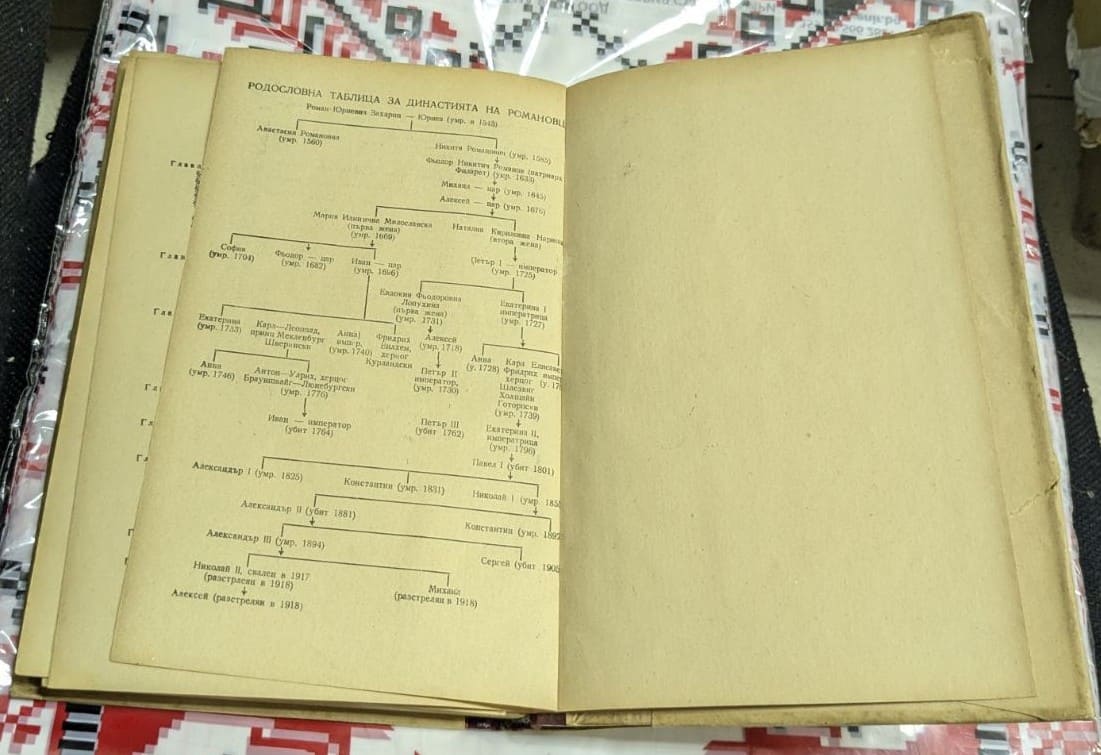 РОДОСЛОВНА ТАБЛИЦА ЗА ДИНАСТИЯТА НА РОМАНОВЦ
Роман Юриевич Захарин — Юриев (умр. в 1543)
Анастасия Романовна
(умр. 1560)
Никита Романович (умр. 1585)
Фьодор Никитич Романов (патриарх
Филарет) (умр. 1633)
Михаил — цар (умр. 1645)
Алексей — цар (умр. 1676)
Мария Илинична Милославска
(първа жена)
(умр. 1669)
Наталия Кириловна Нариш
(втора жена)
София
(умр. 1704)
Фьодор — цар
(умр. 1682)
Иван — цар
(умр. 1696)
Петър I — император
(умр. 1725)
Евдокия Фьодоровна
Лопухина
(първа жена)
(умр. 1731)
Екатерина I
императрица
(умр. 1727)
Екатерина
(умр. 1733)
Карл—Леополд,
принц Мекленбург
Шверински
Анна
импер.
(умр. 1740)
Фридрих
Вилхем,
херцог
Курландски
Алексей
(умр. 1718)
Анна
(у. 1728)
Карл
Фридрих
херцог
Шлезвиг
Холщайн
Готорпски
(умр. 1739)
Елисаве
импе
(у. 17
Анна
(умр. 1746)
Антон—Улрих, херцог
Брауншвайг—Люнебургски
(умр. 1776)
Петър II
император,
(умр. 1730)
Иван — император
(убит 1764)
Петър III
(убит 1762)
Екатерина II,
императрица
(умр. 1796)
Павел I (убит 1801)
Александър I (умр. 1825)
Константин (умр. 1831)
Николай I (умр. 185
Александър II (убит 1881)
Константин (умр. 1892
Александър III (умр. 1894)
Сергей (убит 1905
Николай II, свален в 1917
(разстрелян в 1918)
Михаил
(разстрелян в 1918)
Алексей (разстрелян в 1918)
Глава
Глав
Глав
Гла
Гл
Гл